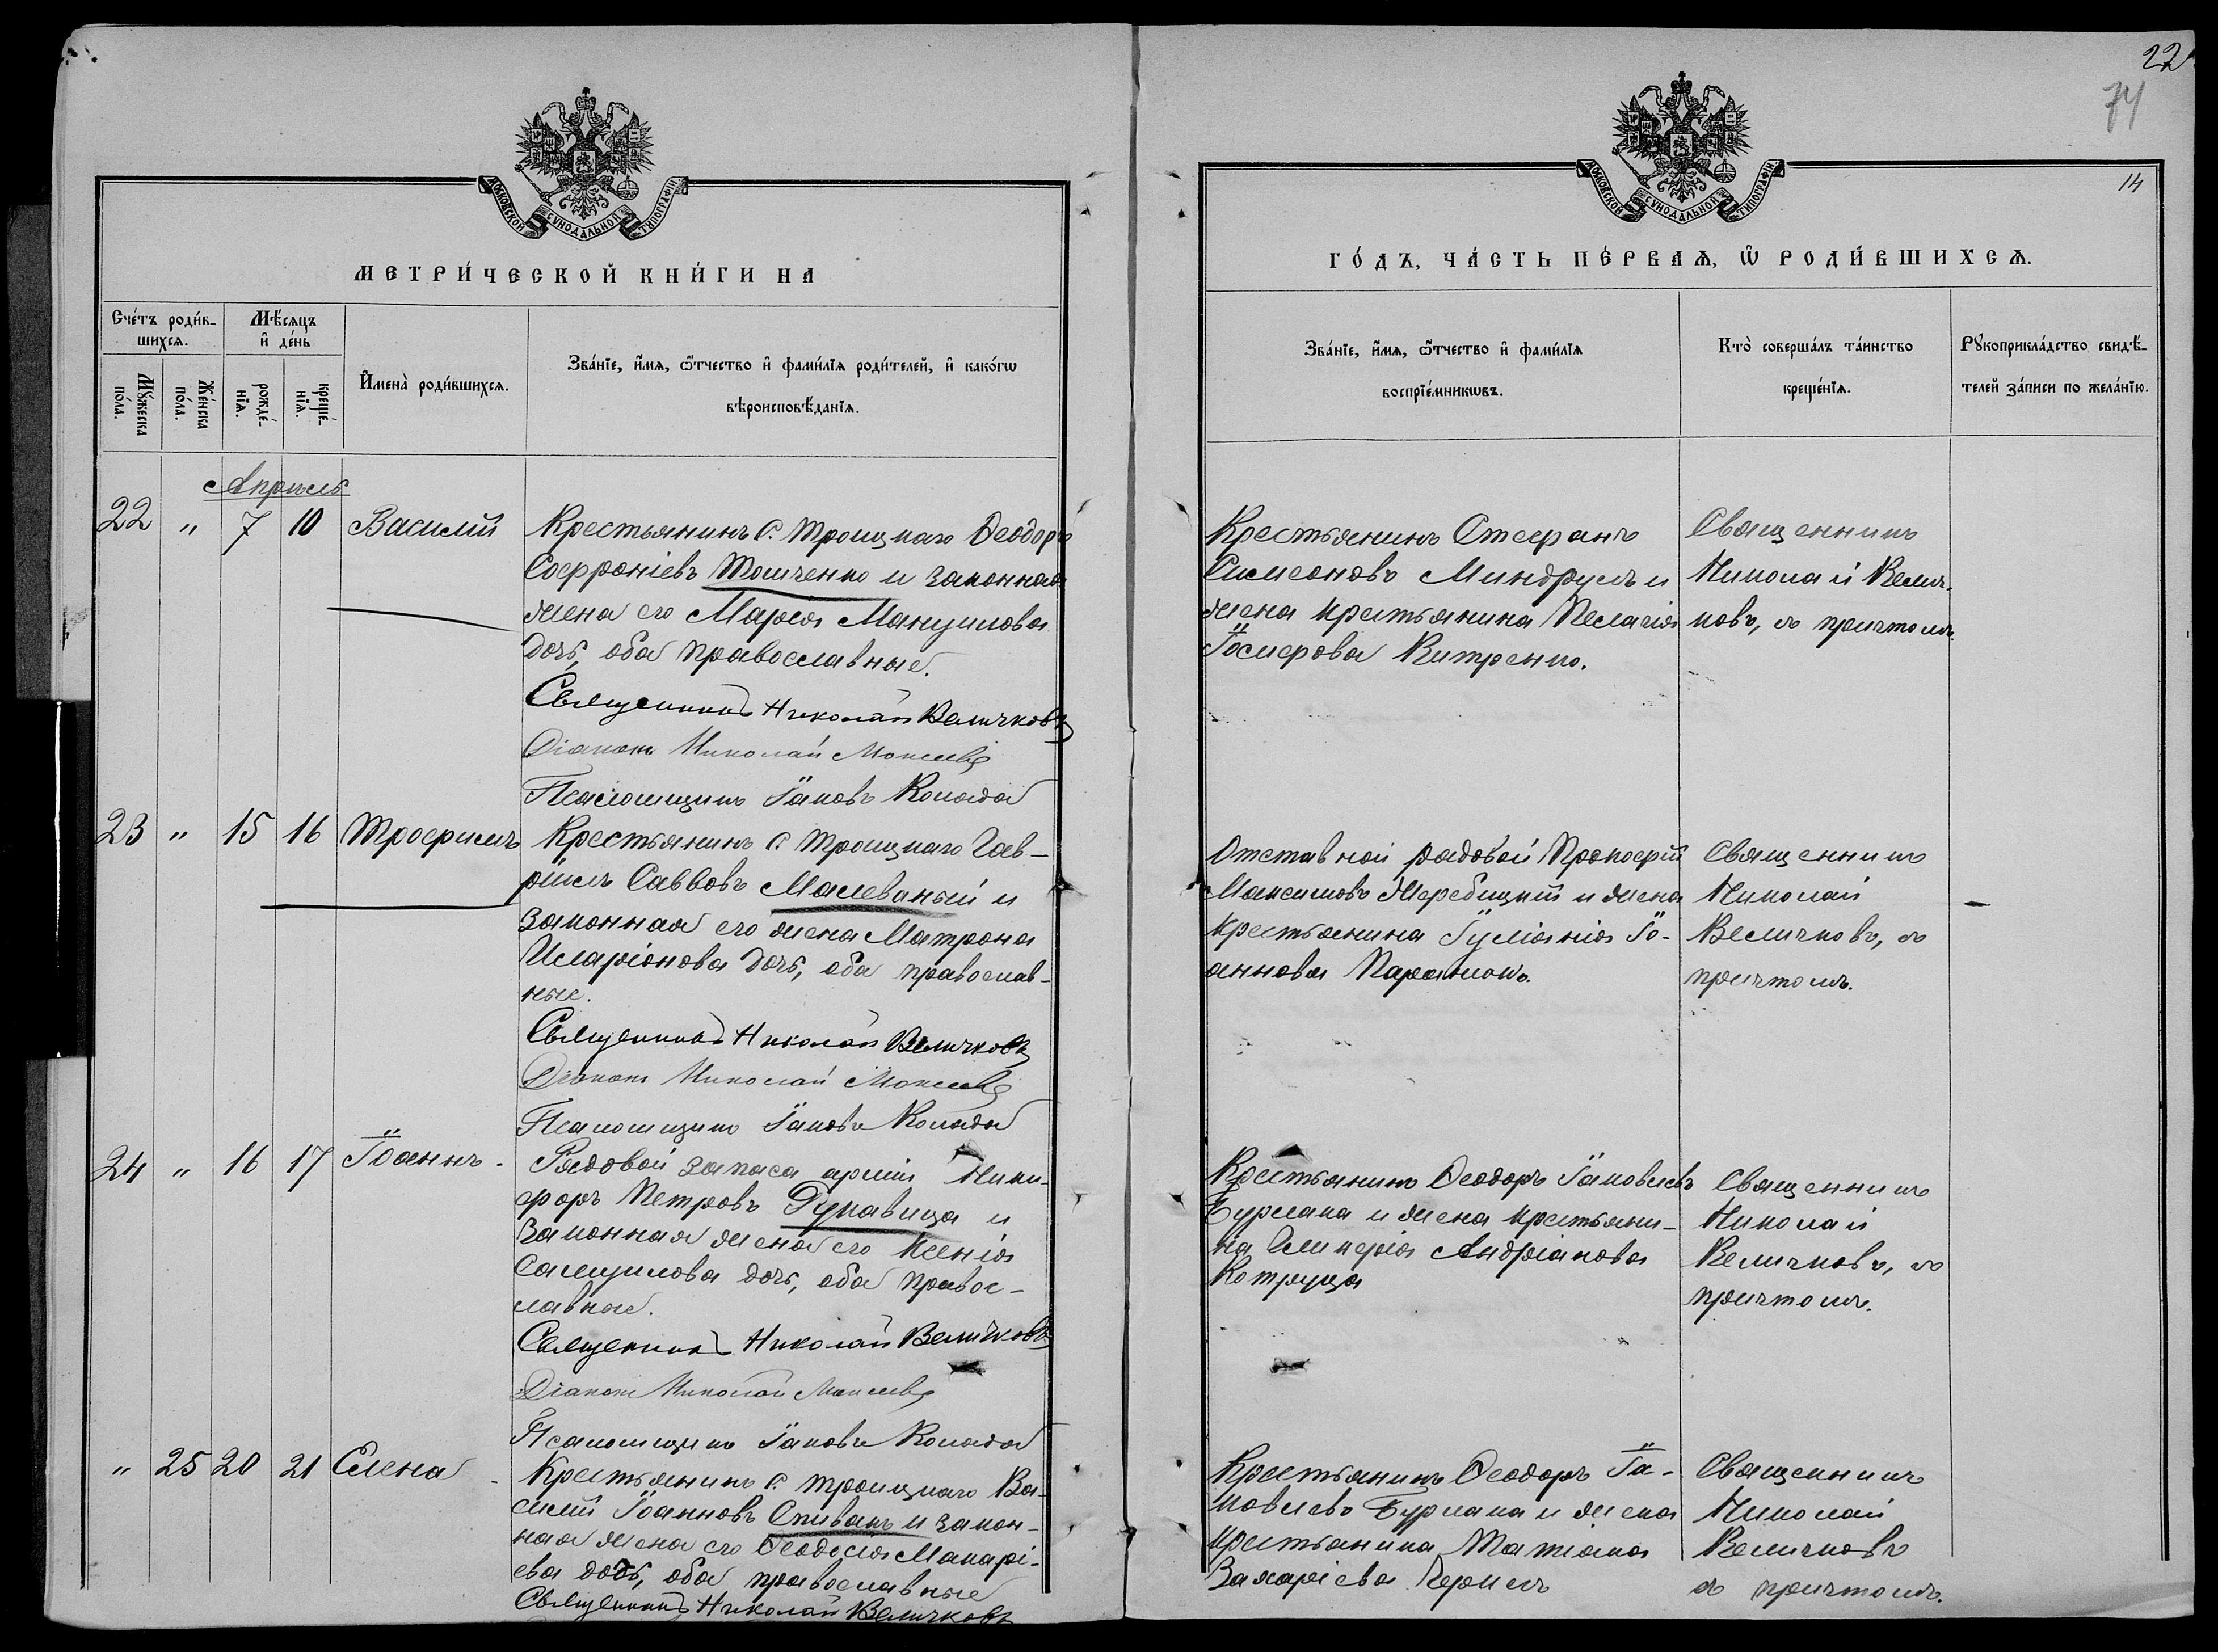 22
74
14
МОСКОВСКОЙ СѴНОДАЛЬНОЙ ТИПОГРАФІИ
МЕТРИ́ЧЕСКОЙ КНИ́ГИ НА
Сче́тъ роди́в-
шихсѧ.
Мꙋ́жеска
по́ла.
Же́нска
по́ла.
Мѣ́сѧцъ
и҆ де́нь
рожде́-
нїѧ.
креще́-
нїѧ.
И҆мена̀ роди́вшихсѧ.
Зва́нїе, и҆́мѧ, ѻ҆́тчество и҆ фами́лїѧ роди́телей, и҆ како́гѡ
вѣроисповѣ́данїѧ.
Апрѣль
22 " 7 10 Василій
Крестьянинъ с. Троицкаго Ѳеодоръ
Софроніевъ Томченко и законная
жена его Марія Мануилова
дочь, оба православные.
Священникъ Николай Величковъ
Діаконъ Николай Мокіевъ
Псаломщикъ Іаковъ Коляда
23 " 15 16 Трофимъ
Крестьянинъ с. Троицкаго Гав-
ріилъ Саввовъ Малеваный и
законная его жена Матрона
Иларіонова дочь, оба православ-
ные.
Священникъ Николай Величковъ
Діаконъ Николай Мокіевъ
Псаломщикъ Іаковъ Коляда
24 " 16 17 Іоаннъ
Рядовой запаса арміи Ники-
форъ Петровъ Рукавица и
законная жена его Ксенія
Самуилова дочь, оба правос-
лавные.
Священникъ Николай Величковъ
Діаконъ Николай Мокіевъ
Псаломщикъ Іаковъ Коляда
" 25 20 21 Елена
Крестьянинъ с. Троицкаго Ва-
силій Іоанновъ Спивакъ и закон-
ная жена его Ѳеодосія Макарі-
ева дочь, оба православные
Священникъ Николай Величковъ
МОСКОВСКОЙ СѴНОДАЛЬНОЙ ТИПОГРАФІИ
ГО́ДЪ, ЧА́СТЬ ПЕ́РВАѦ, Ѡ҆ РОДИ́ВШИХСѦ.
Зва́нїе, и҆́мѧ, ѻ҆́тчество и҆ фами́лїѧ
воспрїе́мникѡвъ.
Кто̀ соверша́лъ та́инство
креще́нїѧ.
Рꙋкоприкла́дство свидѣ́-
телей за́писи по жела́нїю.
Крестьянинъ Стефанъ
Симеоновъ Миндрулъ и
жена крестьянина Пелагія
Іосифова Китренко.
Священникъ
Николай Велич-
ковъ, съ причтомъ.
Отставной рядовой Прокофій
Максимовъ Жеребицкій и жена
крестьянина Іуліанія Іо-
аннова Парамонъ.
Священникъ
Николай
Величковъ, съ
причтомъ.
Крестьянинъ Ѳеодоръ Іаковлевъ
Бурлака и жена крестьяни-
на Гликерія Андріанова
Котруца
Священникъ
Николай
Величковъ, съ
причтомъ.
Крестьянинъ Ѳеодоръ Іа-
ковлевъ Бурлака и жена
крестьянина Татіана
Захаріева
Священникъ
Николай
Величковъ
съ причтомъ.